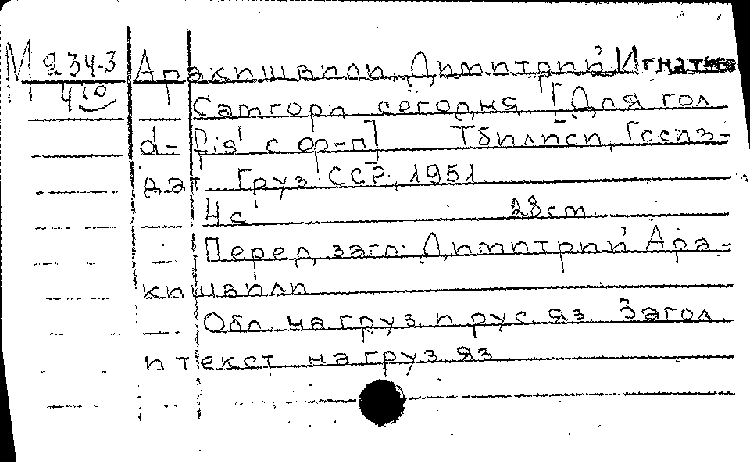 М 234-3 Аракишвили, Димитрий Игнатиев
410 Самгори сегодня. [Для гол.
d-Dis' с ор-п] Тбилиси, Госиз-
дат Груз ССР, 1951
4 с 28 см.
Перед загл.: Димитрий Ара-
кишвили
Обл. на груз. и рус. яз. Загол.
и текст на груз. яз.